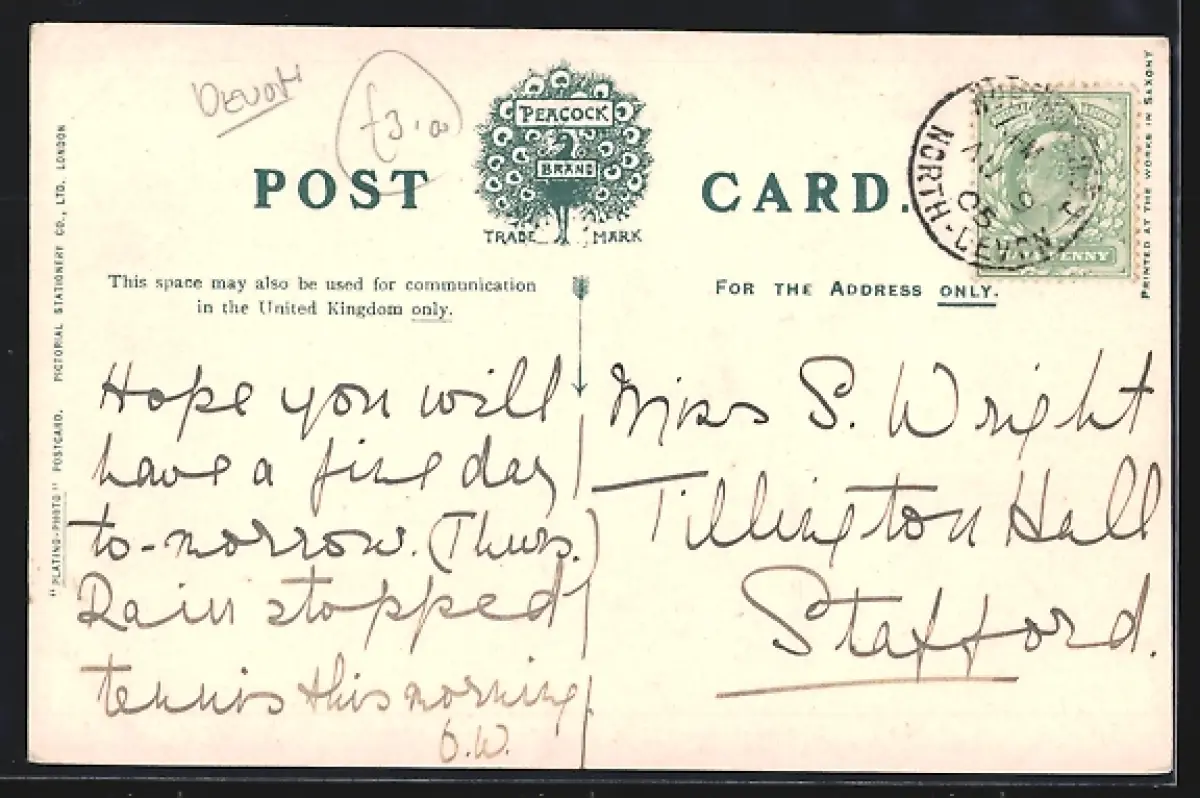 DEVON
£3.00
PEACOCK
BRAND
TRADE MARK
POST CARD.
This space may also be used for communication
in the United Kingdom only.
FOR THE ADDRESS ONLY.
NORTH-DEVON
AU
05
HALFPENNY
"PLATINO-PHOTO" POSTCARD. PICTORIAL STATIONERY CO., LTD. LONDON
PRINTED AT THE WORKS IN SAXONY
Hope you will
have a fine day
to-morrow. (Thurs.)
Rain stopped
tennis this morning
O.W.
Miss S. Wright
Tillington Hall
Stafford.